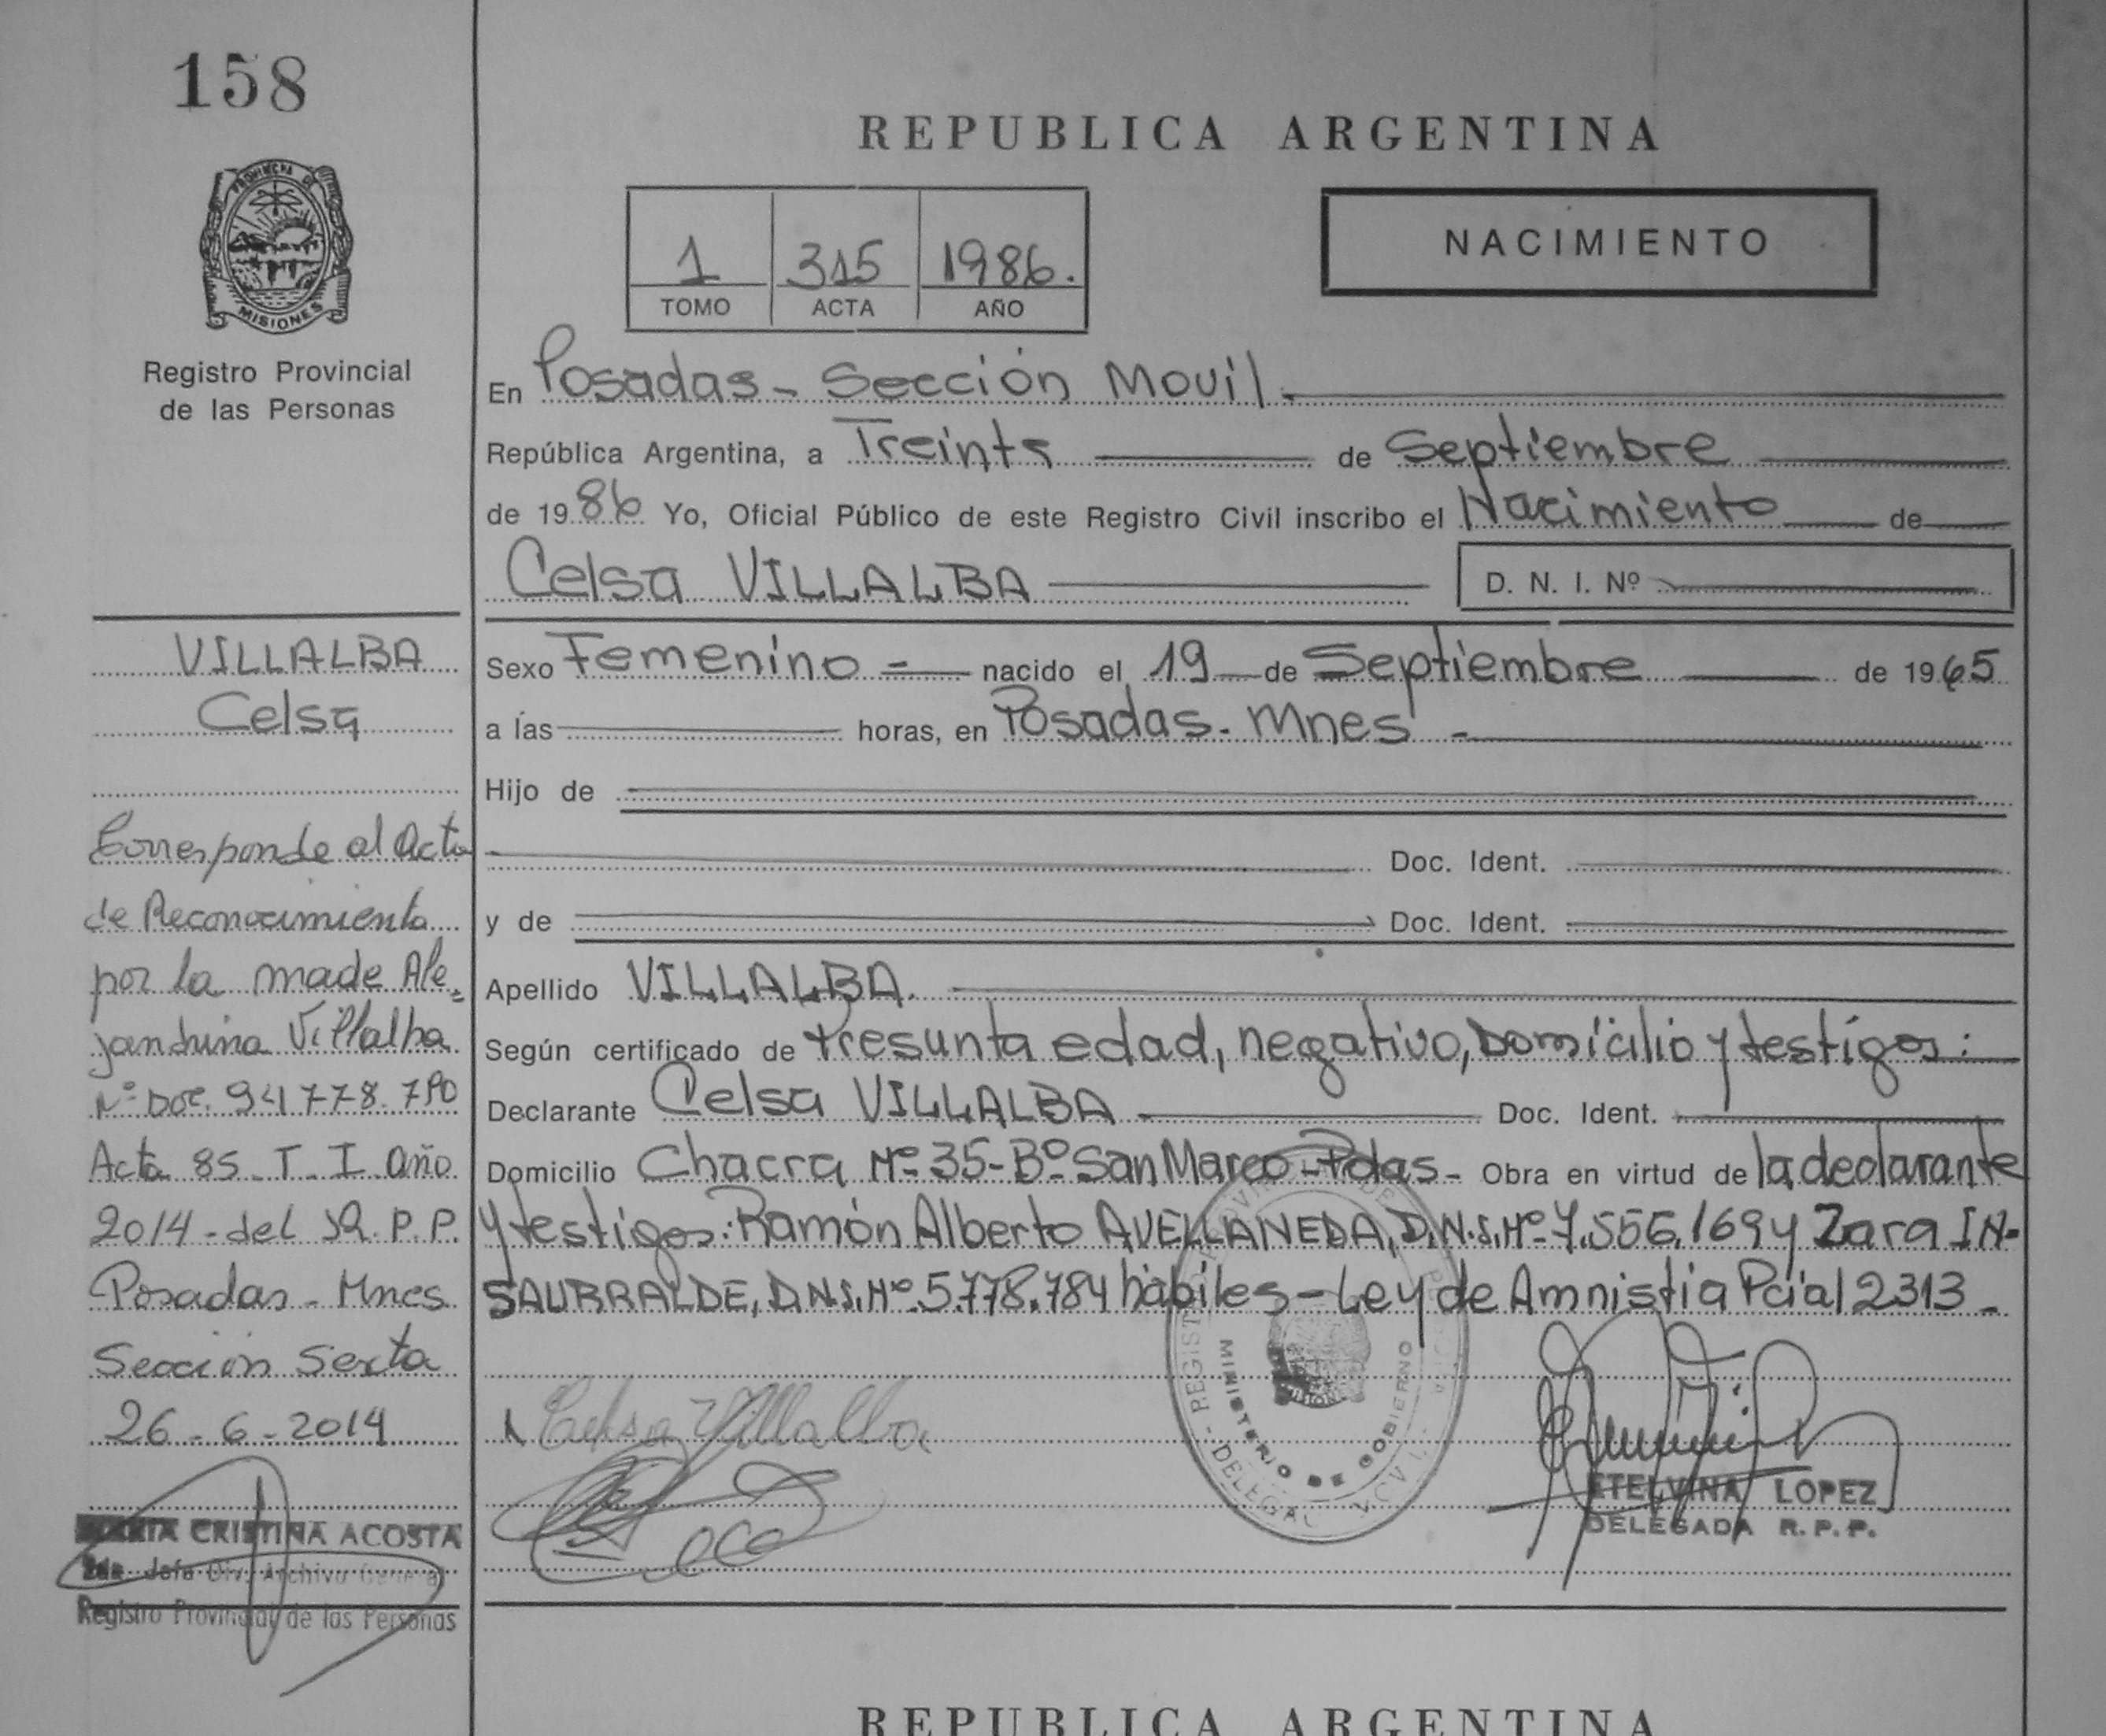 158
REPUBLICA ARGENTINA
PROVINCIA DE
MISIONES
1 315 1986.
TOMO ACTA AÑO
NACIMIENTO
Registro Provincial
de las Personas
En Posadas - Sección Movil
República Argentina, a Treinta de Septiembre
de 1986 Yo, Oficial Público de este Registro Civil inscribo el Nacimiento de
Celsa VILLALBA D. N. I. Nº
Sexo Femenino - nacido el 19 de Septiembre de 1965
a las horas, en Posadas - Mnes -
Hijo de
Doc. Ident.
y de Doc. Ident.
Apellido VILLALBA.
Según certificado de Presunta edad, negativo, Domicilio y testigos:
Declarante Celsa VILLALBA Doc. Ident.
Domicilio Chacra Nº 35 - Bº San Marco - Pdas - Obra en virtud de la declarante
y testigos: Ramón Alberto AVELLANEDA, D.N.I. Nº 7.556.169 y Zara IN-
SAURRALDE, D.N.I. Nº 5.778.784 hábiles - Ley de Amnistia Pcial 2313 -
Celsa Villalba
MINISTERIO DE GOBIERNO
ETELVINA LOPEZ
DELEGADA R. P. P.
VILLALBA
Celsa
Corresponde al Acta
de Reconocimiento
por la made Ale=
jandrina Villalba
Nº Doc. 94 778. 790
Acta 85 - T - I año
2014 - del R. P. P.
Posadas - Mnes
Sección Sexta
26 - 6 - 2014
MARIA CRISTINA ACOSTA
2da. Jefa Div. Archivo General
Registro Provincial de las Personas
REPUBLICA ARGENTINA